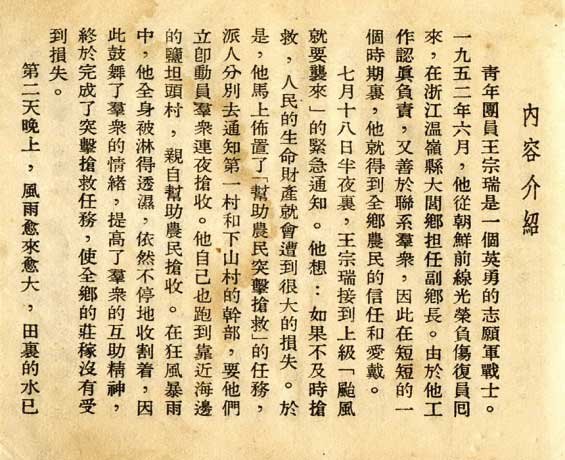 內容介紹
青年團員王宗瑞是一個英勇的志願軍戰士。
一九五二年六月，他從朝鮮前線光榮負傷復員囘
來，在浙江溫嶺縣大閭鄉担任副鄉長。由於他工
作認眞負責，又善於聯系羣衆，因此在短短的一
個時期裏，他就得到全鄉農民的信任和愛戴。
七月十八日半夜裏，王宗瑞接到上級「颱風
就要襲來」的緊急通知。他想：如果不及時搶
救，人民的生命財產就會遭到很大的損失。於
是，他馬上佈置了「幫助農民突擊搶救」的任務，
派人分別去通知第一村和下山村的幹部，要他們
立卽動員羣衆連夜搶收。他自己也跑到靠近海邊
的鹽坦頭村，親自幫助農民搶收。在狂風暴雨
中，他全身被淋得透濕，依然不停地收割着，因
此鼓舞了羣衆的情緒，提高了羣衆的互助精神，
終於完成了突擊搶救任務，使全鄉的莊稼沒有受
到損失。
第二天晚上，風雨愈來愈大，田裏的水已